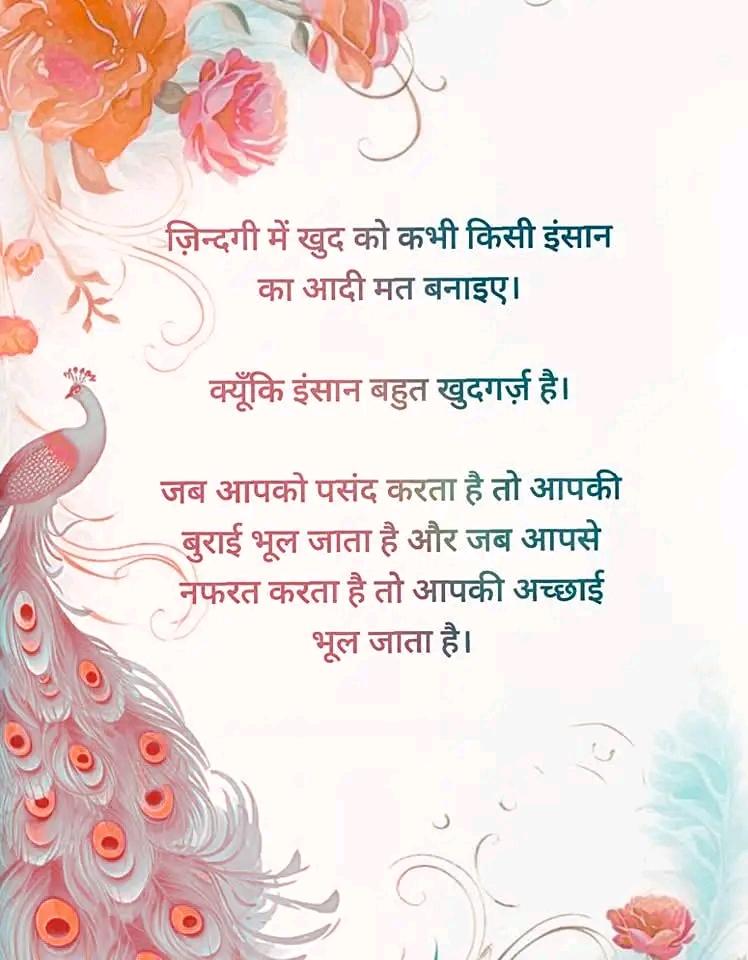 ज़िन्दगी में खुद को कभी किसी इंसान
का आदी मत बनाइए।
क्यूँकि इंसान बहुत खुदगर्ज़ है।
जब आपको पसंद करता है तो आपकी
बुराई भूल जाता है और जब आपसे
नफरत करता है तो आपकी अच्छाई
भूल जाता है।